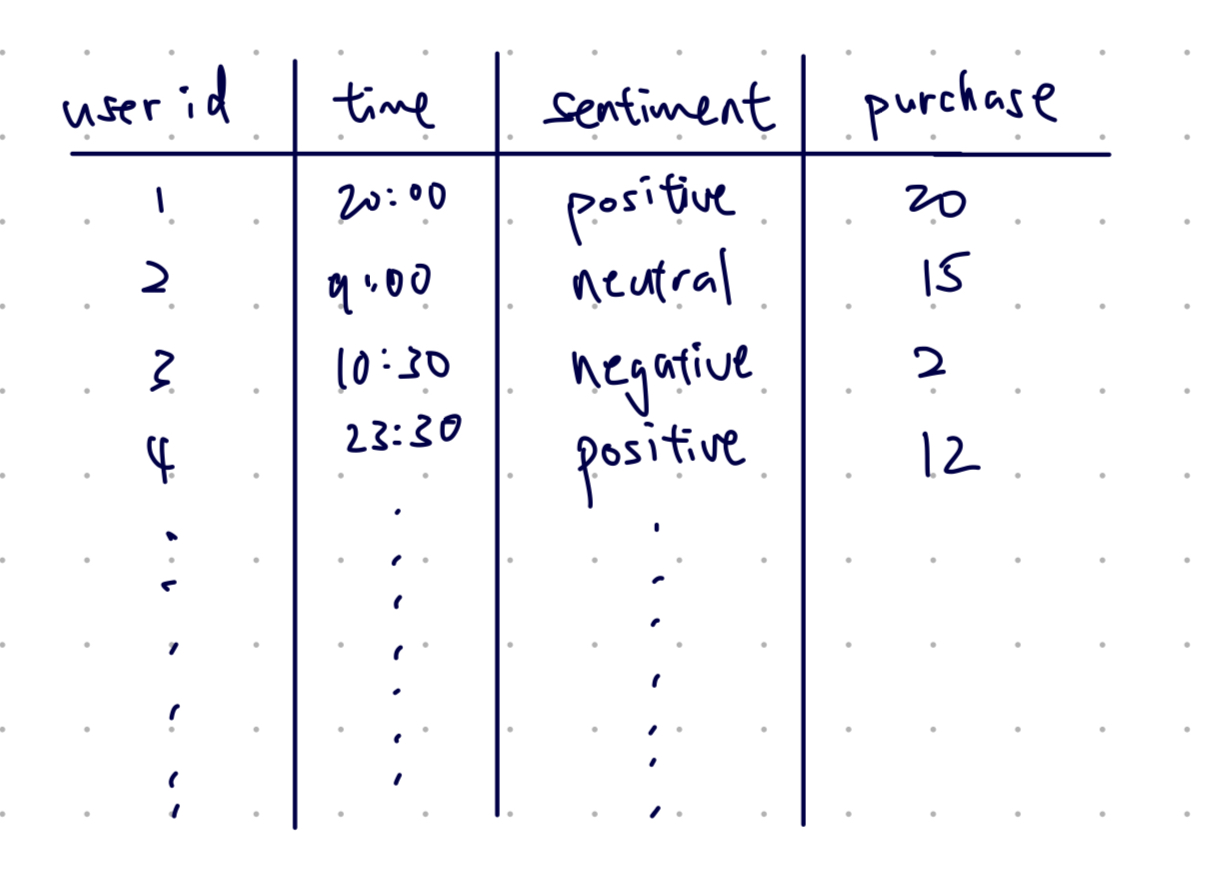 user id time sentiment purchase
1 20:00 positive 20
2 9:00 neutral 15
3 10:30 negative 2
4 23:30 positive 12